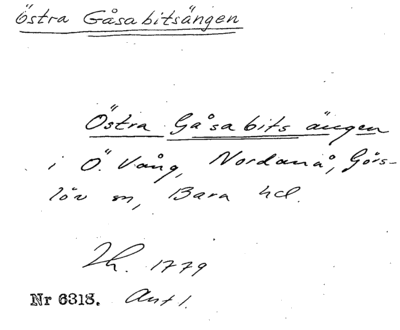 Östra Gåsabitsängen
Östra Gåsabits ängen
i Ö. Vång, Nordanå, Görs-
löv sn, Bara hd.
Zh. 1779
Nr 6313. Ant 1.